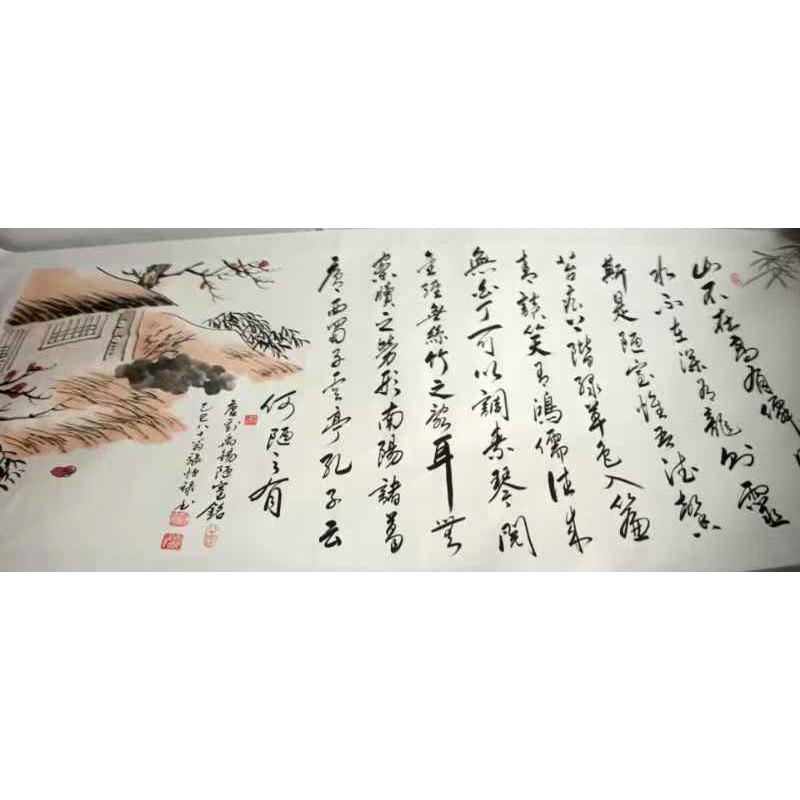 山不在高有僊
水不在深有龍则靈
斯是陋室惟吾德馨
苔痕上階绿草色入簾
青談笑有鴻儒往来
無白丁可以調素琴閱
金經無絲竹之亂耳無
案牘之勞形南陽諸葛
廬西蜀子雲亭孔子云
何陋之有
唐劉禹錫陋室銘
乙巳八十翁張书